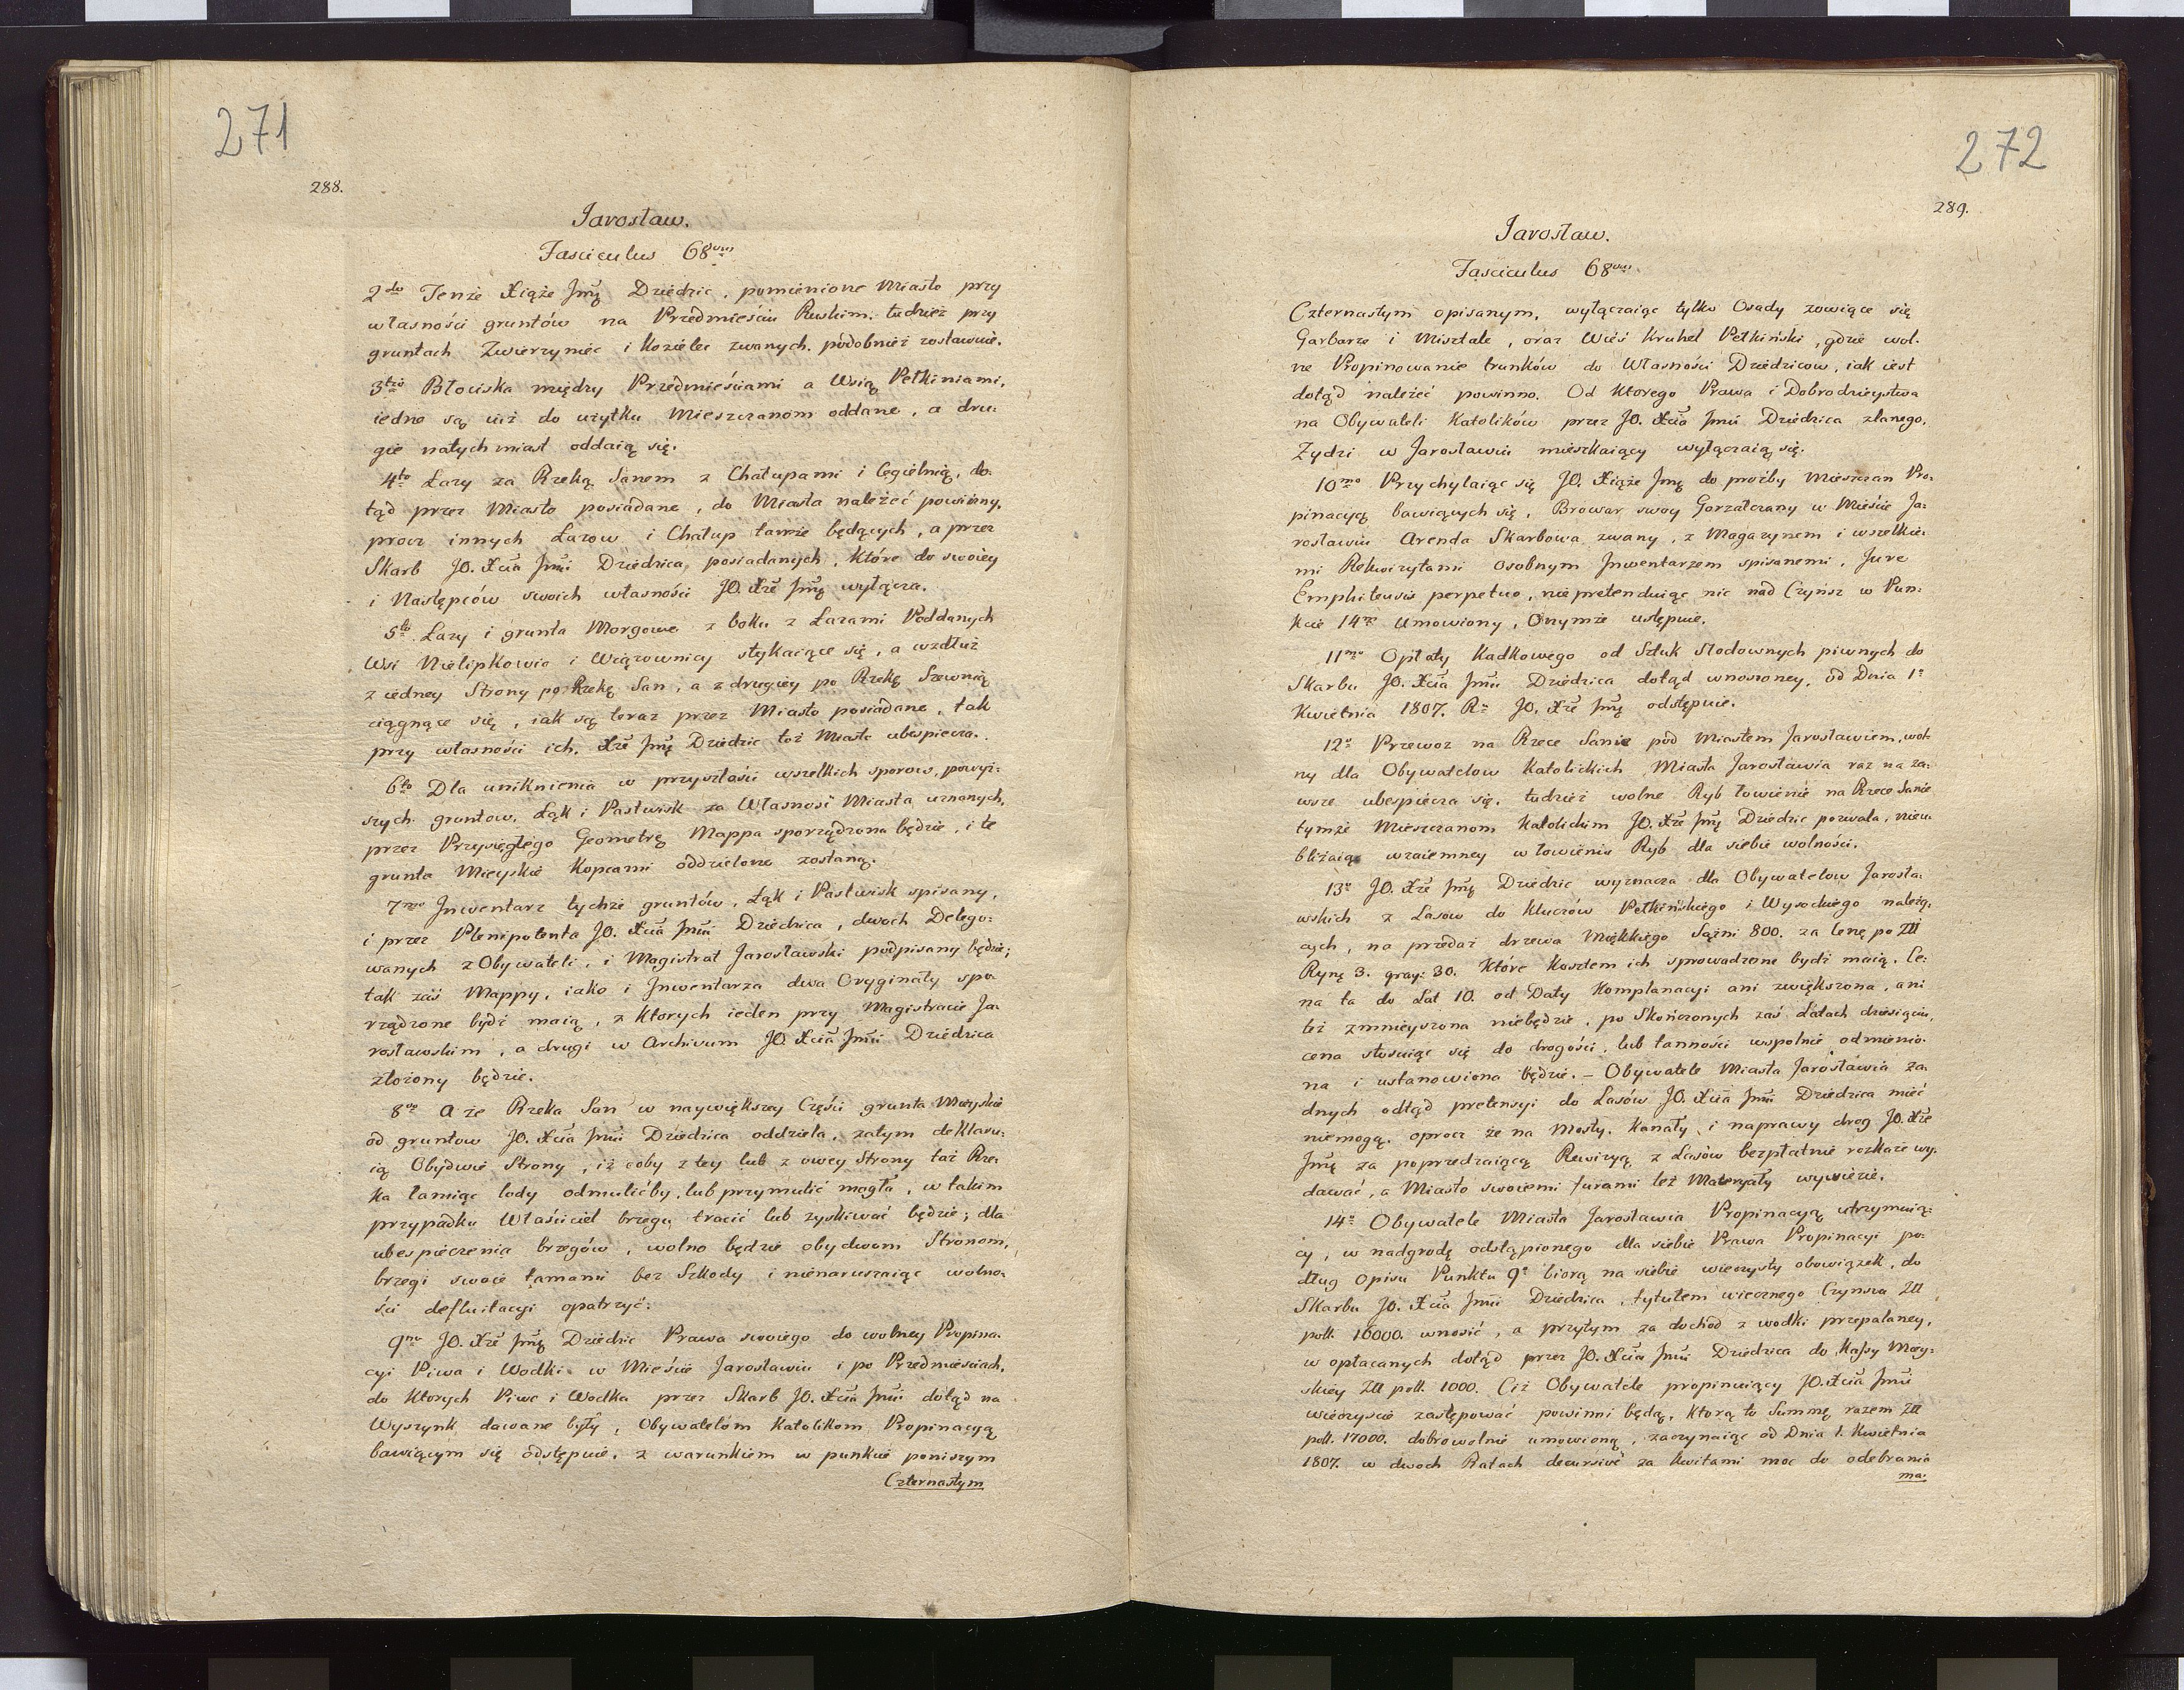 271
288.
Jarosław.
Fasciculus 68um
2do Tenże Xiąże Jmę Dziedzic, pomienione Miasto przy
własności gruntów na Przedmieściu Ruskim, tudzież przy
gruntach Zwierzyniec i Kozielec zwanych, podobnież zostawuie.
3tio Błociska między Przedmieściami a Wsią Pełkiniami,
iedne są iuż do użytku Mieszczanom oddane, a dru:
gie natychmiast oddaią się.
4to Łazy za Rzeką Sanem z Chałupami i Cegielnią, do:
tąd przez Miasto posiadane, do Miasta należeć powinny,
procz innych Łazow i Chałup tamże będących, a przez
Skarb JO. Xcia Jmci Dziedzica posiadanych, które do swoiey
i Następców swoich własności JO. Xże Jmę wyłącza.
5to Łazy i grunta Morgowe z boku z Łazami Poddanych
Wsi Nielipkowic i Wiązownicy stykaiące się, a wzdłuż
z iedney Strony po Rzekę San, a z drugiey po Rzekę Szewnią
ciągnące się, iak są teraz przez Miasto posiadane, tak
przy własności ich, Xże Jmę Dziedzic toż Miasto ubespiecza.
6to Dla uniknienia w przyszłości wszelkich sporow, powyż:
szych gruntow, Łąk i Pastwisk za Własność Miasta uznanych,
przez Przysięgłego Geometrę Mappa sporządzona będzie, i te
grunta Mieyskie Kopcami oddzielone zostaną.
7mo Inwentarz tychże gruntów, Łąk i Pastwisk spisany,
i przez Plenipotenta JO. Xcia Jmci Dziedzica, dwoch Delego:
wanych z Obywateli, i Magistrat Jarosławski podpisany będzie;
tak zaś Mappy, iako i Inwentarza dwa Oryginały spo:
rządzone bydź maią, z ktorych ieden przy Magistracie Ja:
rosławskim, a drugi w Archivum JO. Xcia Jmci Dziedzica
złożony będzie.
8vo A że Rzeka San w naywiększey Części grunta Mieyskie
od gruntow JO. Xcia Jmci Dziedzica oddziela, zatym deklaru:
ią Obydwie Strony, iż coby z tey lub z owey Strony taż Rze:
ka łamiąc lody odmulićby, lub przymulić mogła, w takim
przypadku Właściciel brzegu tracić lub zyskiwać będzie; dla
ubespieczenia brzegów, wolno będzie obydwom Stronom,
brzegi swoie tamami bez Szkody i nienaruszaiąc wolno:
ści defluitacyi opatrzyć.
9no JO. Xże Jmę Dziedzic Prawa swoiego do wolney Propina:
cyi Piwa i Wodki w Mieście Jarosławiu i po Przedmieściach,
do ktorych Piwo i Wodka przez Skarb JO. Xcia Jmci dotąd na
Wyszynk dawane były, Obywatelóm Katolikom Propinacyą
bawiącym się odstępuie, z warunkiem w punkcie poniszym
Czternastym
272
289.
Jarosław.
Fasciculus 68um
Czternastym opisanym, wyłączaiąc tylko Osady zowiące się
Garbarze i Misztale, oraz Wieś Kruhel Pełkiński, gdzie wol:
ne Propinowanie trunków do Własności Dziedzicow, iak iest
dotąd należeć powinno. Od ktorego Prawa i Dobrodzieystwa
na Obywateli Katolików przez JO. Xcia Jmci Dziedzica zlanego,
Żydzi w Jarosławiu mieszkaiący wyłączaią się.
10mo Przychylaiąc się JO. Xiąże Jmę do prośby Mieszczan Pro:
pinacyą bawiących się, Browar swoy Gorzałczany w Mieście Ja:
rosławiu Arenda Skarbowa zwany, z Magazynem i wszelkie:
mi Rekwizytami Osobnym Inwentarzem spisanemi, Jure
Emphiteusis perpetuo, niepretenduiąc nic nad Czynsz w Pun:
kcie 14to Umowiony, Onymże ustępuie.
11mo Opłaty Kadkowego od Sztuk Słodownych piwnych do
Skarbu JO. Xcia Jmci Dziedzica dotąd wnoszoney, od Dnia 1o
Kwietnia 1807. Ru JO. Xże Jmę odstępuie.
12o Przewoz na Rzece Sanie pod Miastem Jarosławiem, wol:
ny dla Obywatelow Katolickich Miasta Jarosławia raz na za:
wsze ubespiecza się, tudzież wolne Ryb łowienie na Rzece Sanie
tymże Mieszczanom Katolickim JO. Xże Jmę Dziedzic pozwala, nieu:
bliżaiąc wzaiemney w łowieniu Ryb dla siebie wolności.
13o JO. Xże Jmę Dziedzic wyznacza dla Obywatelow Jarosła:
wskich z Lasow do Kluczów Pełkińskiego i Wysockiego należą:
cych, na przedaż drzewa Miękkiego Sążni 800. za cenę po Zll
Rynę 3. gray: 30. Które Kosztem ich sprowadzone bydź maią. Ce:
na ta do Lat 10. od Daty Komplanacyi ani zwiększona, ani
też zmnieyszona niebędzie, po Skończonych zaś Latach dziesięciu,
cena stosuiąc się do drogości, lub tanności wspolnie odmienio:
na i ustanowiona będzie. – Obywatele Miasta Jarosławia ża:
dnych odtąd pretensyi do Lasów JO. Xcia Jmci Dziedzica mieć
niemogą, oprocz że na Mosty, Kanały, i naprawy drog JO. Xże
Jmę za poprzedzaiącą Rewizyą z Lasów bezpłatnie rozkaże wy:
dawać, a Miasto swoiemi furami też Materyały wywiezie.
14o Obywatele Miasta Jarosławia Propinacyą utrzymuią:
cy, w nadgrodę odstąpionego dla siebie Prawa Propinacyi po:
dług Opisu Punktu 9o biorą na siebie wieczysty obowiązek, do
Skarbu JO. Xcia Jmci Dziedzica, tytułem wiecznego Czynszu Zll
poll. 16000. wnosić, a przytym za dochód z wodki przepalaney,
w opłacanych dotąd przez JO. Xcia Jmci Dziedzica do Kassy Miey:
skiey Zll poll. 1000. Ciż Obywatele propinuiący JO. Xcia Jmci
wieczyscie zastępować powinni będą, Ktorą to Summę razem Zll
poll. 17000. dobrowolnie umowioną, zaczynaiąc od Dnia 1. Kwietnia
1807. w dwoch Ratach decursive za Kwitami moc do odebrania
ma: